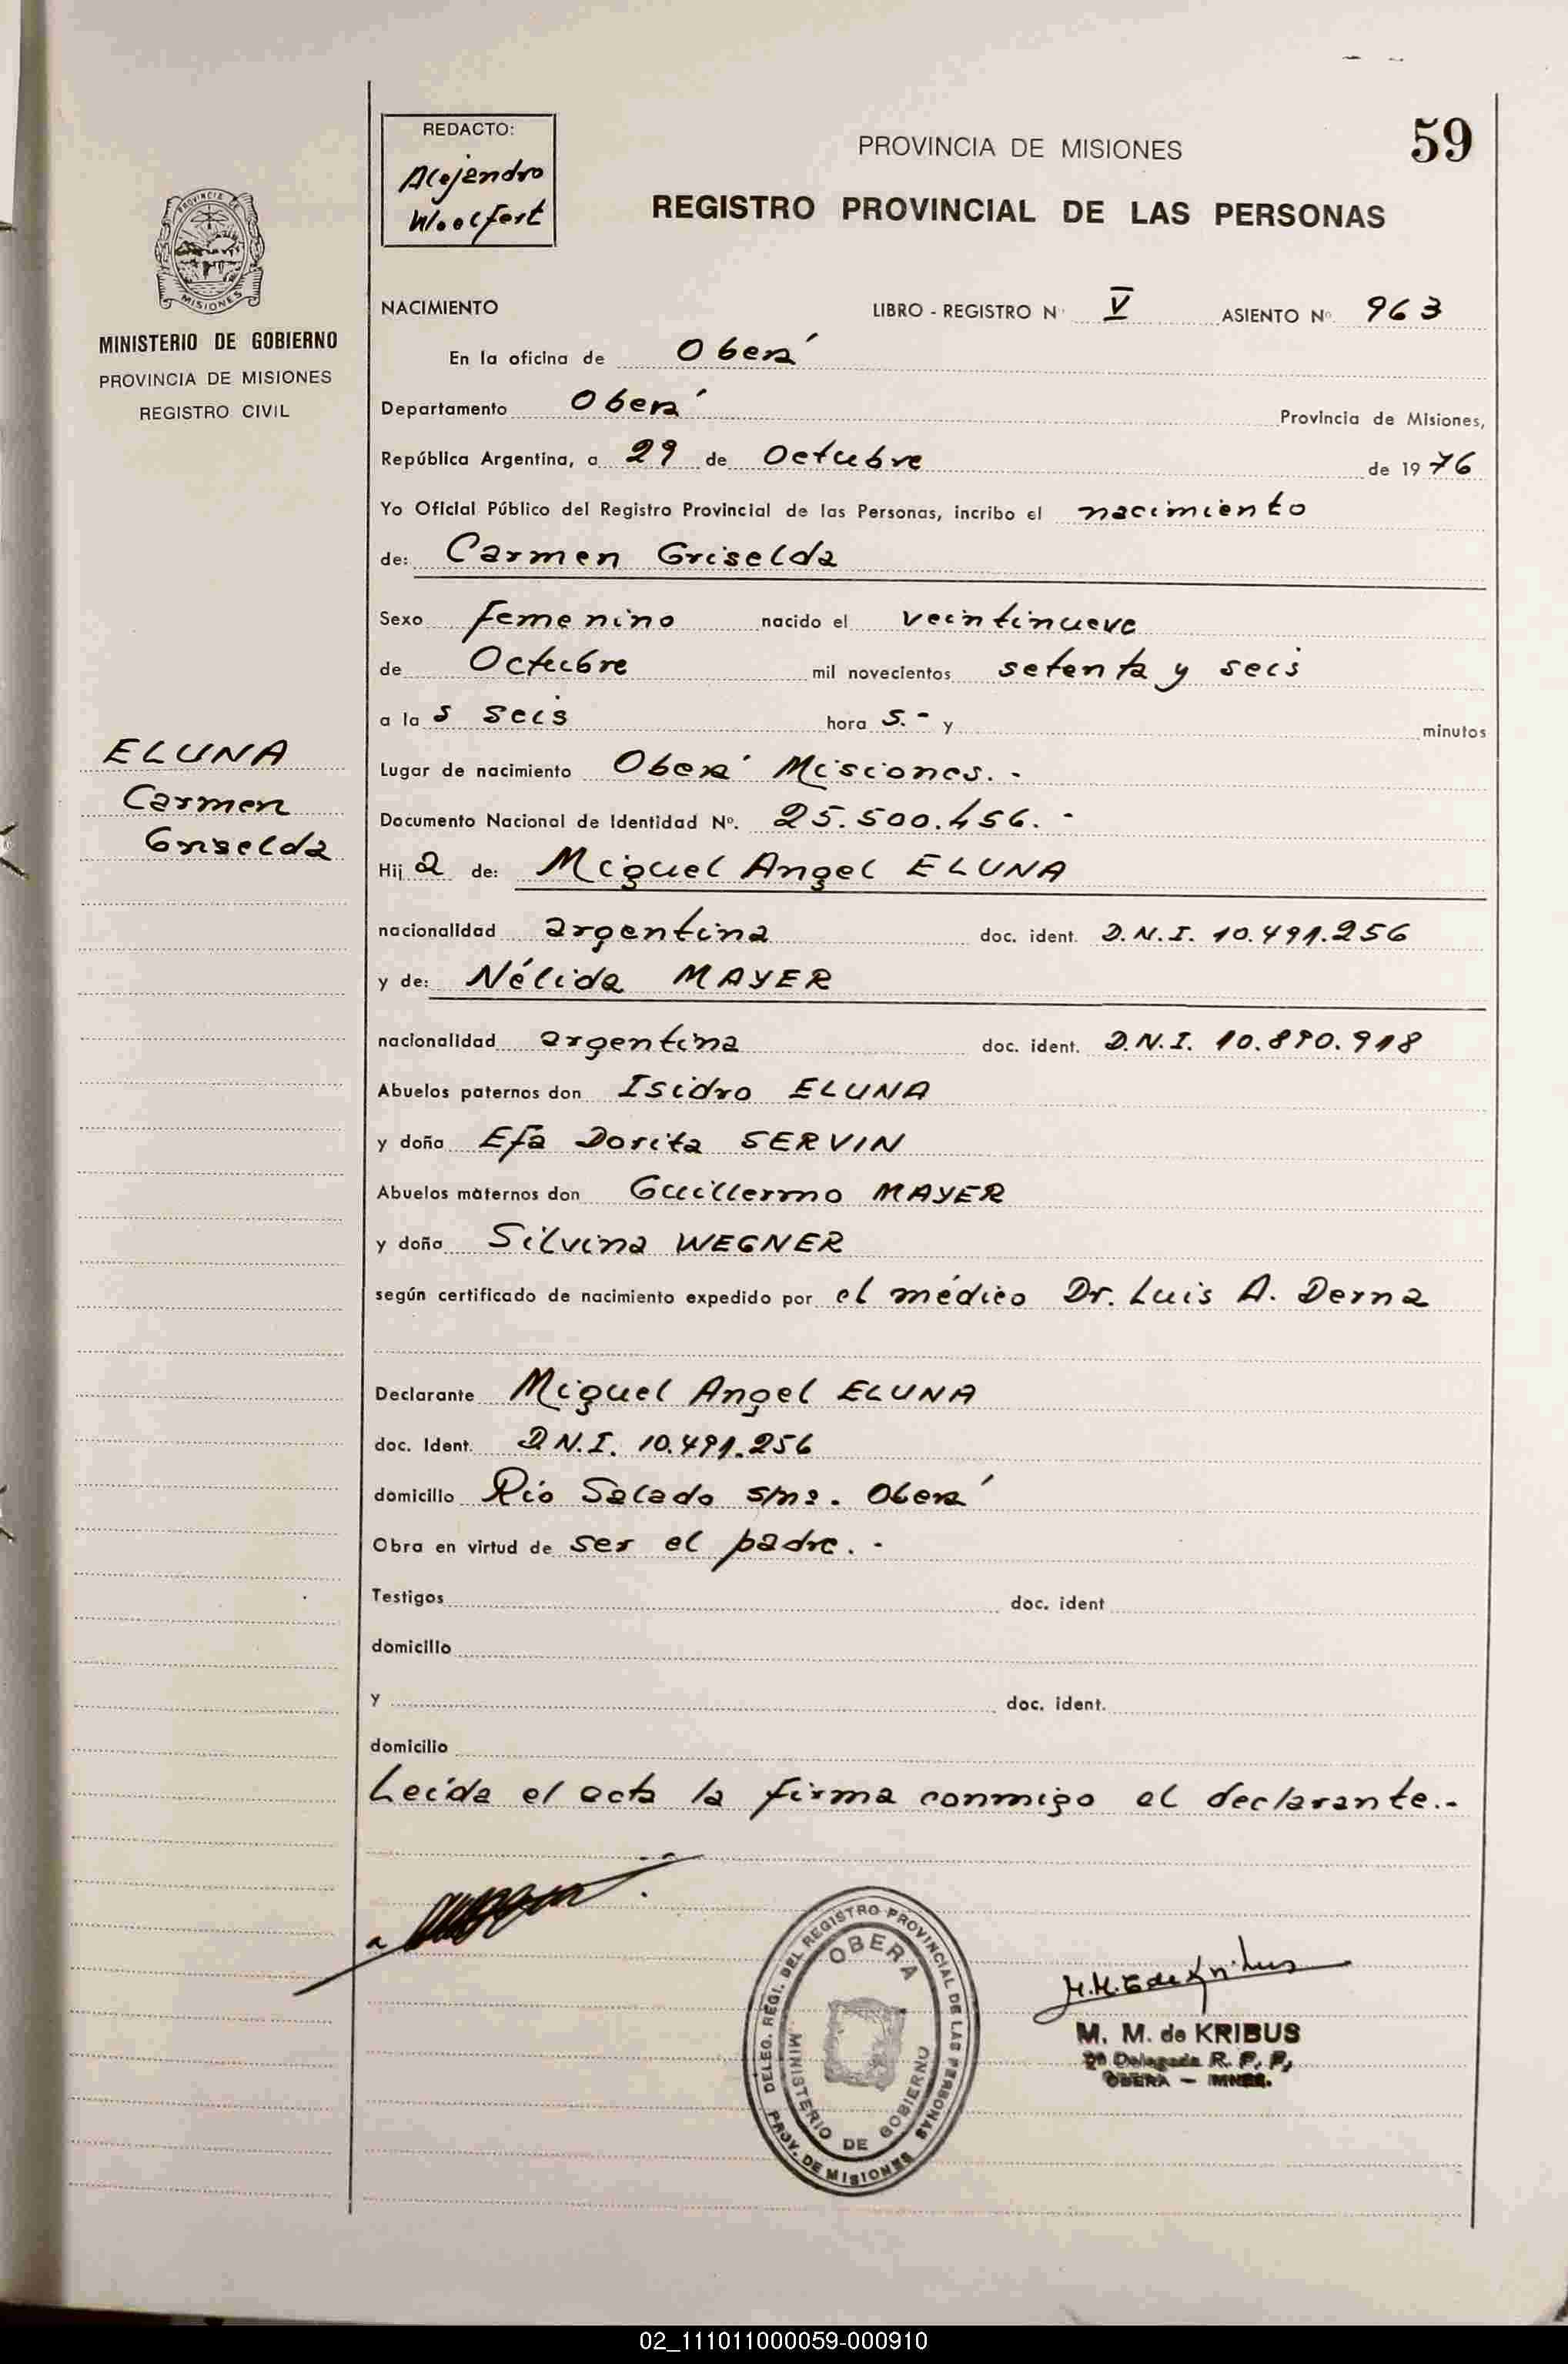 REDACTO:
Alejandro
Woolfert
PROVINCIA DE MISIONES
59
REGISTRO PROVINCIAL DE LAS PERSONAS
PROVINCIA DE
MISIONES
MINISTERIO DE GOBIERNO
PROVINCIA DE MISIONES
REGISTRO CIVIL
NACIMIENTO LIBRO - REGISTRO Nº V ASIENTO Nº 963
En la oficina de Oberá
Departamento Oberá Provincia de Misiones,
República Argentina, a 29 de Octubre de 1976
Yo Oficial Público del Registro Provincial de las Personas, incribo el nacimiento
de: Carmen Griselda
Sexo femenino nacido el veintinueve
de Octubre mil novecientos setenta y seis
a las seis hora s.- y minutos
ELUNA
Carmen
Griselda
Lugar de nacimiento Oberá Misiones.-
Documento Nacional de Identidad Nº. 25.500.456.-
Hija de: Miguel Angel ELUNA
nacionalidad argentina doc. ident. D.N.I. 10.491.256
y de: Nélida MAYER
nacionalidad argentina doc. ident. D.N.I. 10.890.918
Abuelos paternos don Isidro ELUNA
y doña Efa Dorita SERVIN
Abuelos maternos don Guillermo MAYER
y doña Silvina WEGNER
según certificado de nacimiento expedido por el médico Dr. Luis A. Derna
Declarante Miguel Angel ELUNA
doc. Ident. D.N.I. 10.491.256
domicilio Río Salado s/nº. Oberá
Obra en virtud de ser el padre.-
Testigos doc. ident
domicilio
y doc. ident.
domicilio
Leída el acta la firma conmigo el declarante.-
DELEG. REGI. DEL REGISTRO PROVINCIAL DE LAS PERSONAS
PROV. DE MISIONES
OBERA
MINISTERIO DE GOBIERNO
M. M. de KRIBUS
2ª Delegada R. P. P.
OBERA - MNES.
02_111011000059-000910